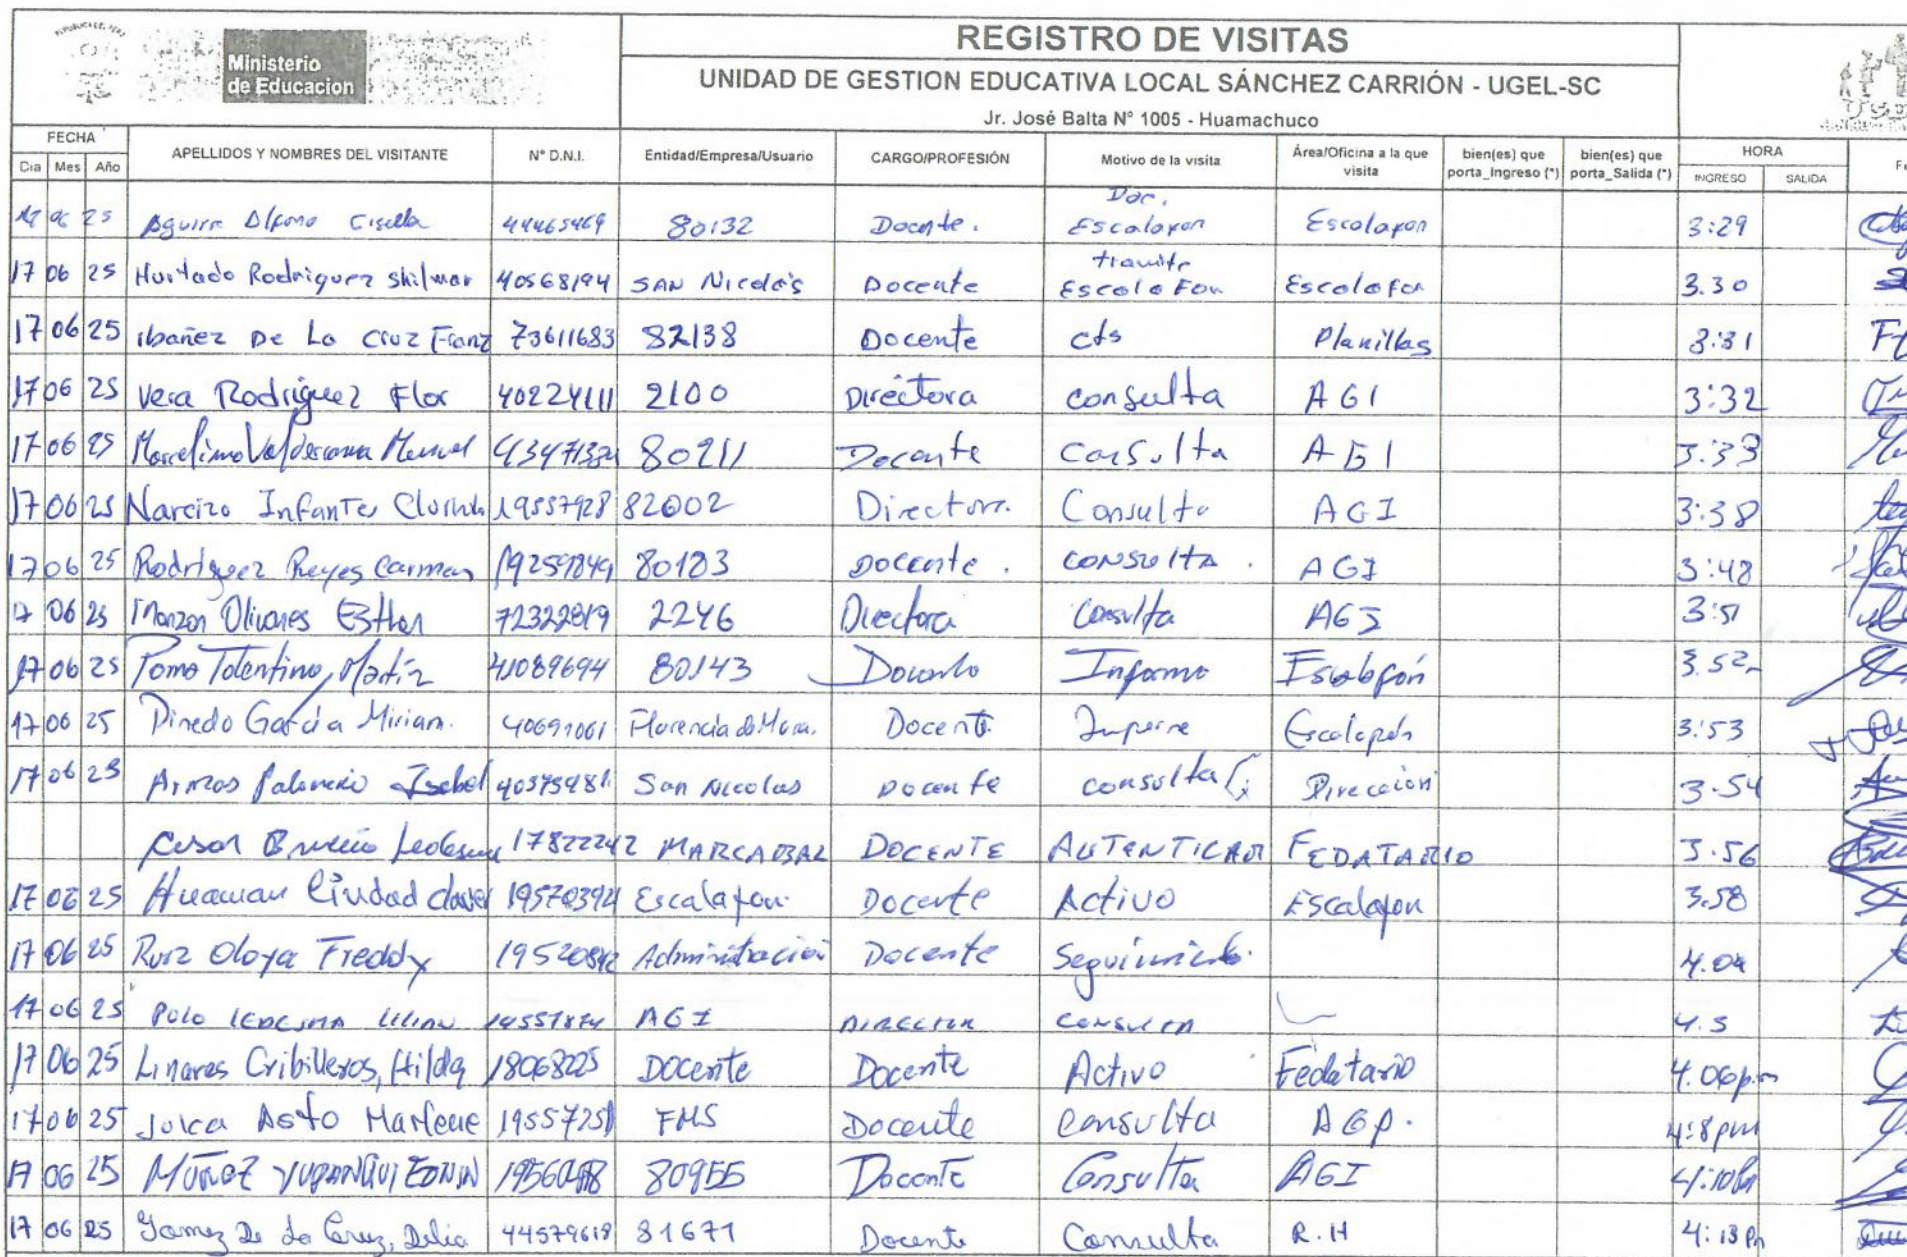 REPUBLICA DEL PERU
Ministerio
de Educacion
REGISTRO DE VISITAS
UNIDAD DE GESTION EDUCATIVA LOCAL SÁNCHEZ CARRIÓN - UGEL-SC
Jr. José Balta N° 1005 - Huamachuco
FECHA APELLIDOS Y NOMBRES DEL VISITANTE N° D.N.I. Entidad/Empresa/Usuario CARGO/PROFESIÓN Motivo de la visita Área/Oficina a la que visita bien(es) que porta_Ingreso (*) bien(es) que porta_Salida (*) HORA
Dia Mes Año INGRESO SALIDA
25 Aguirre 44465469 80132 Docente. Doc. Escalafon Escalafon 3:29
17 06 25 Hurtado Rodriguez Shilmar 40568194 SAN Nicolás Docente tramite Escalafon Escalafon 3.30
17 06 25 ibañez De La Cruz Franz 73611683 82138 Docente cts Planillas 3:31
17 06 25 Vera Rodríguez Flor 40224111 2100 Directora consulta AGI 3:32
17 06 25 Marcelino Valderrama Manuel 80211 Docente Consulta AGI 3:33
17 06 25 Narcizo Infantes 19557928 82002 Directora. Consulta AGI 3:38
17 06 25 Rodríguez Reyes Carmen 80183 Docente. CONSULTA. AGI 3:48
17 06 25 Monzon Olivares Esther 72322819 2246 Directora Consulta AGI 3:51
17 06 25 Pomo Tolentino, Martín 41089694 80143 Docente Informe Escalafón 3.52
17 06 25 Pinedo García Miriam. 40691061 Florencia de Mora. Docente Informe Escalafón 3:53
17 06 25 Isabel San Nicolas Docente consulta Dirección 3.54
Cesar Briceño Ledesma 17822242 MARCABAL DOCENTE AUTENTICAR FEDATARIO 3.56
17 06 25 Huaman Ciudad 19570394 Escalafon. Docente Activo Escalafon 3.58
17 06 25 Ruiz Oloya Freddy Administración Docente Seguimiento. 4.04
17 06 25 POLO LEDESMA LILIAN AGI DIRECTORA CONSULTA 4.5
17 06 25 Linares Cribilleros, Hilda 18068225 Docente Docente Activo Fedatario 4.06p.m
17 06 25 Julca Asto Marlene 19557251 FMS Docente Consulta AGP. 4:8pm
17 06 25 MUÑOZ YUPANQUI EDWIN 80955 Docente Consulta AGI 4:10Pm
17 06 25 Gamez De La Cruz, Delia 44579618 81671 Docente Consulta R.H 4:13 Pm